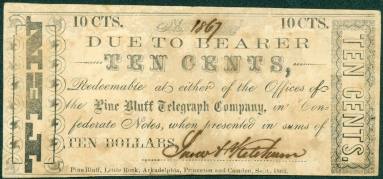 10 CTS. 1867 10 CTS.
DUE TO BEARER
TEN CENTS,
Redeemable at either of the Offices of
the Pine Bluff Telegraph Company, in Con-
federate Notes, when presented in sums of
TEN DOLLARS.
Pine Bluff, Little Rock, Arkadelphia, Princeton and Camden, Sept. 1862.
TEN
TEN CENTS.